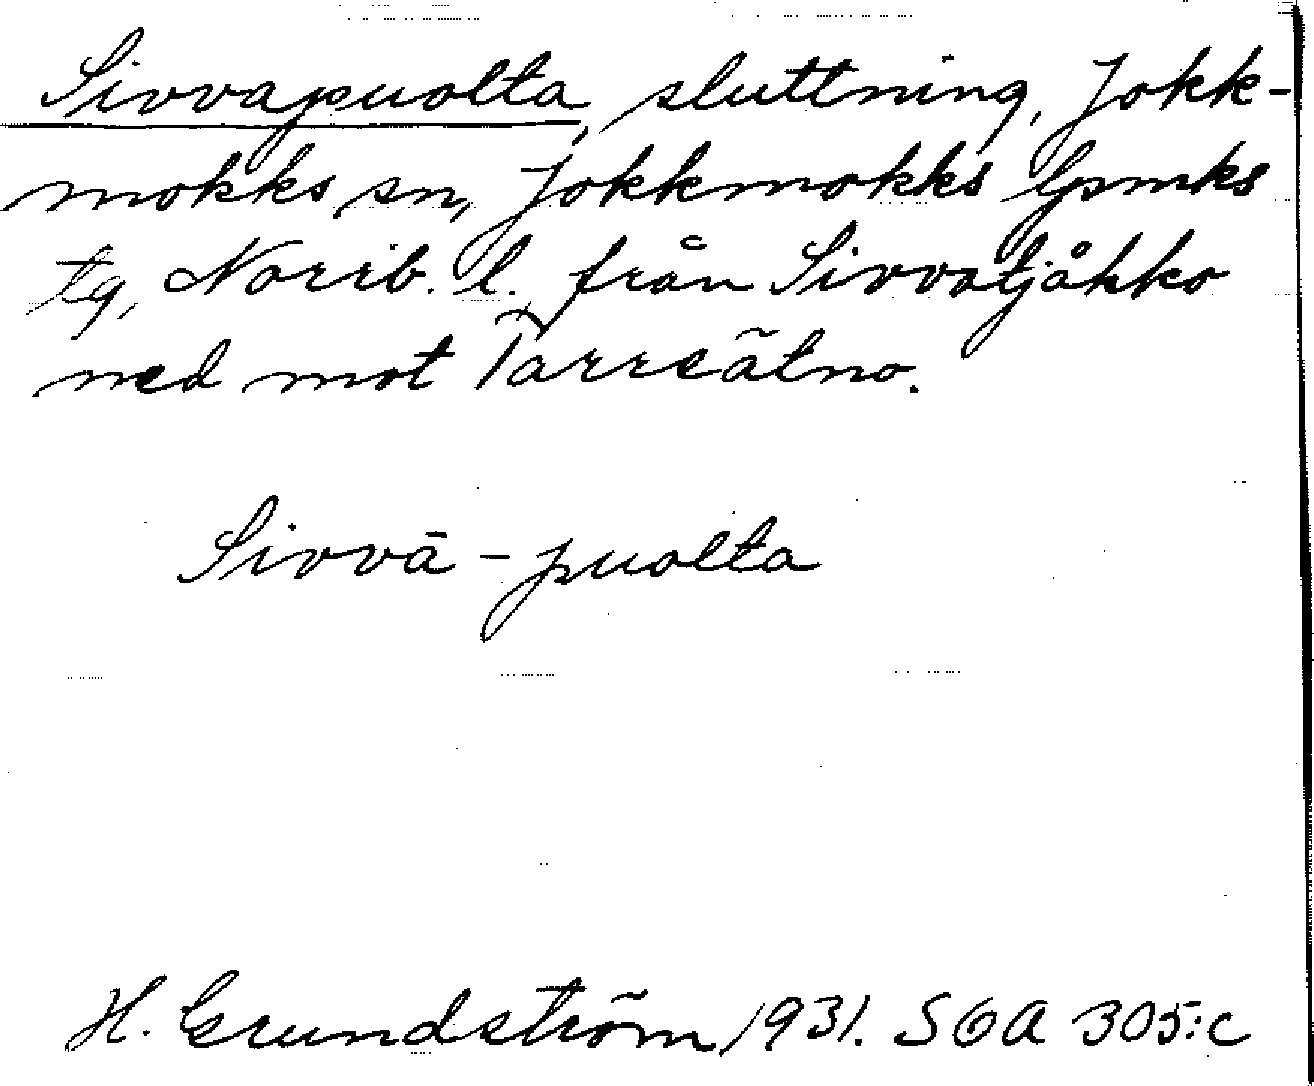 Sivvapuolta, sluttning, Jokk-
mokks sn, Jokkmokks lpmks
tg, Norrb. l. från Sivvatjåkko
ned mot Tarreätno.
Sivvā - puolta
H. Grundström 1931. SOA 305:c